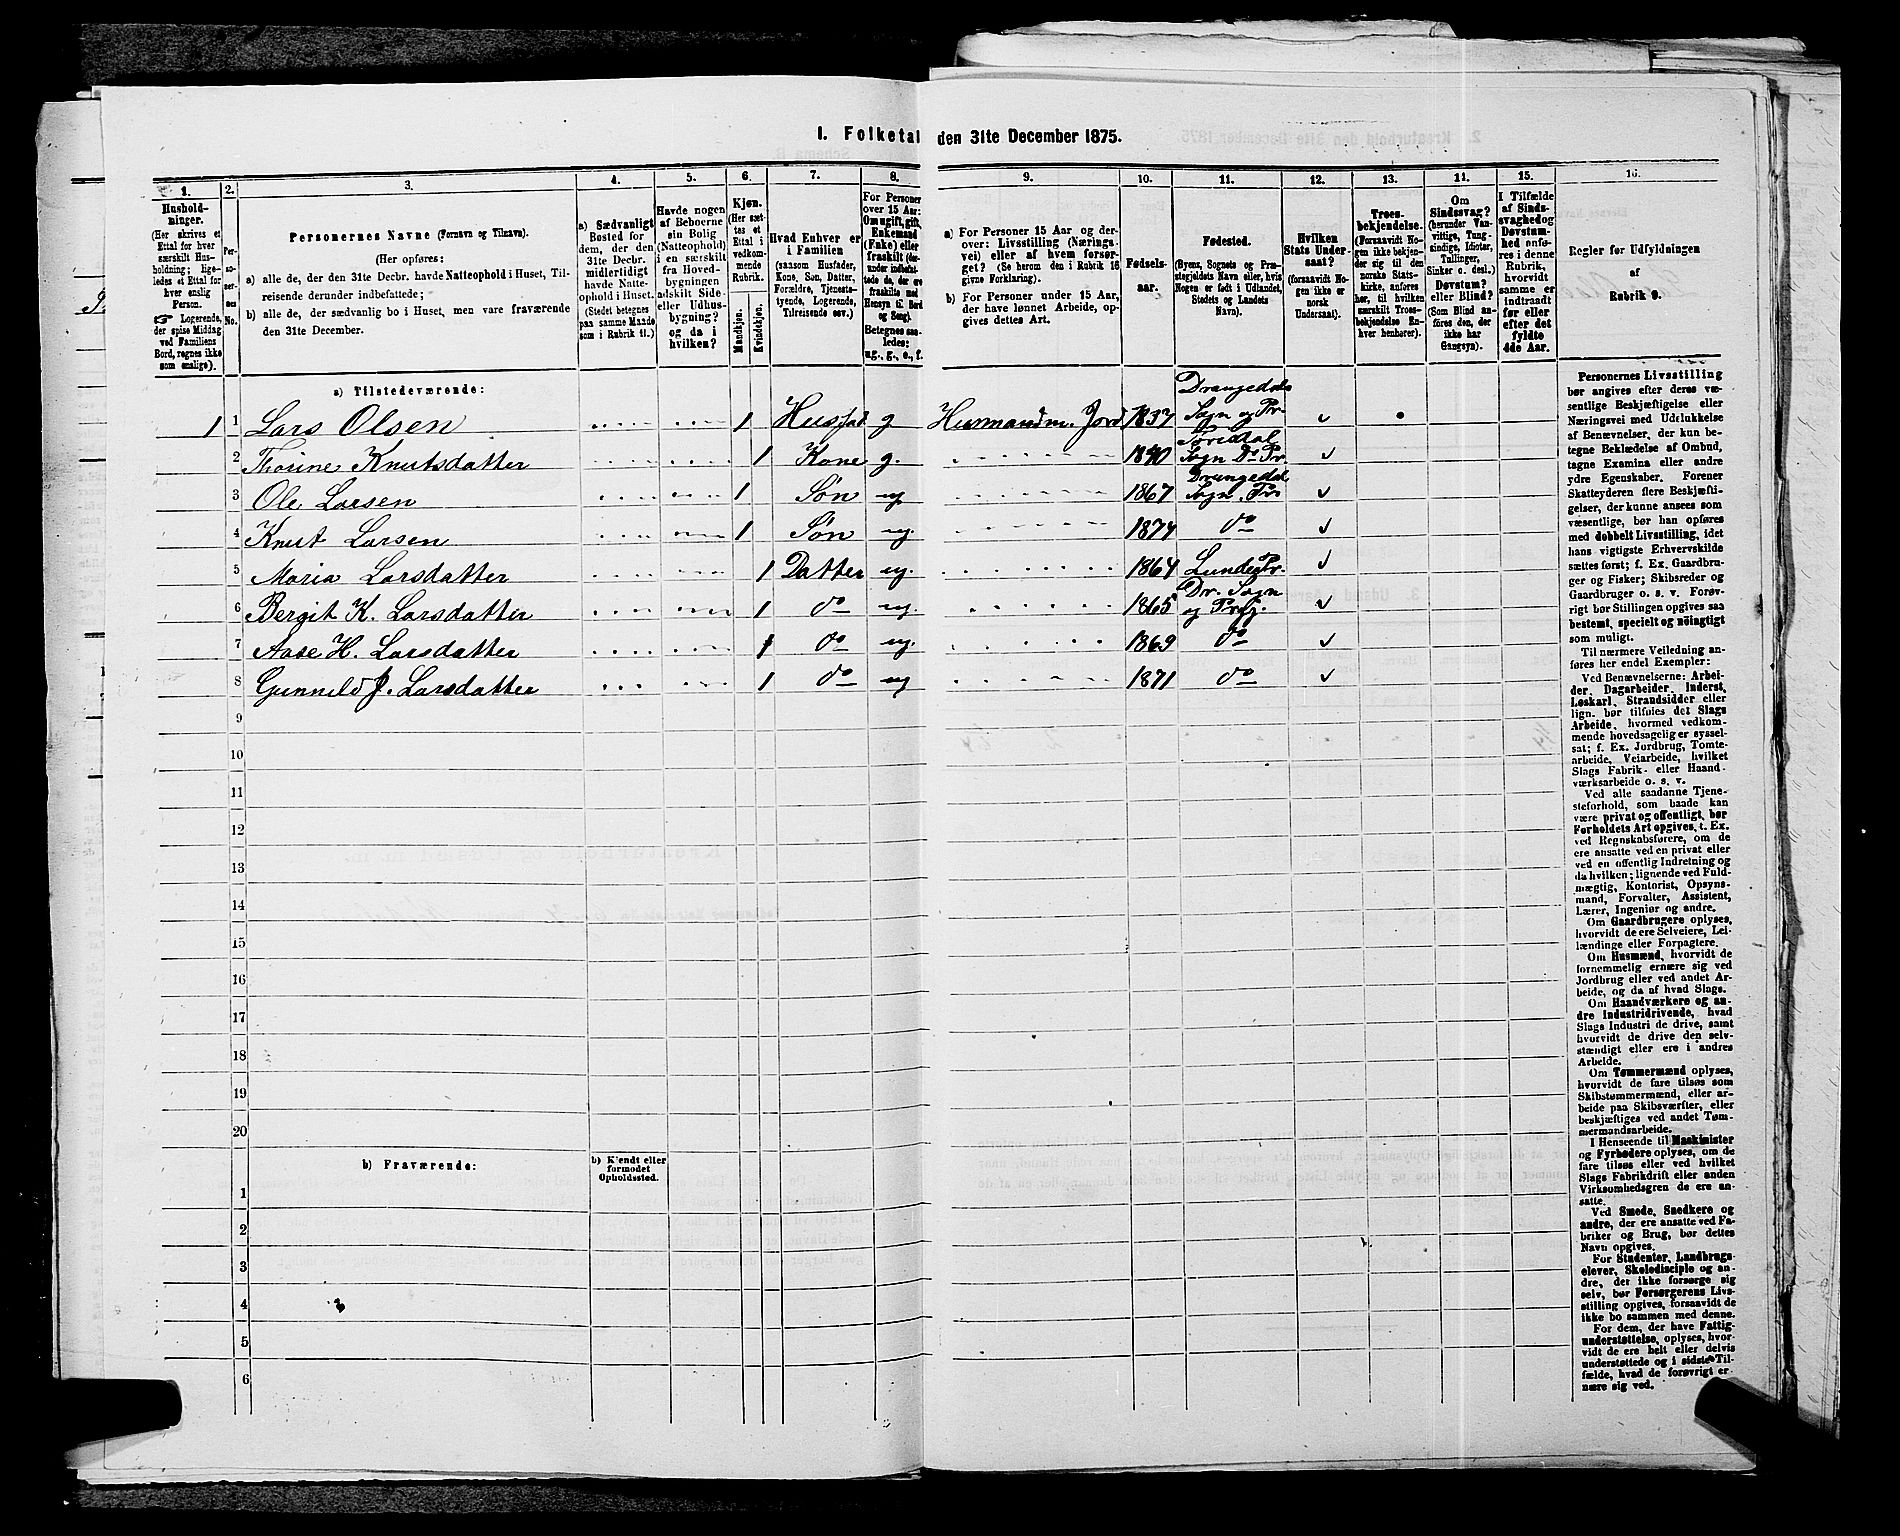 I. Folketal den 31te December 1875.
1.
Husholdninger.
(Her skrives et Ettal for hver særskilt Husholdning; ligeledes et Ettal for hver enslig Person.
☞ Logerende, der spise Middag ved Familiens Bord, regnes ikke som enslige).
2.
Personernes No.
3.
Personernes Navne (Fornavn og Tilnavn).
(Her opføres:
a) alle de, der den 31te Decbr. havde Natteophold i Huset, Tilreisende derunder indbefattede;
b) alle de, der sædvanlig bo i Huset, men vare fraværende den 31te December.
4.
a) Sædvanligt Bosted for dem, der den 31te Decbr. midlertidigt havde Natteophold i Huset. (Stedet betegnes paa samme Maade som i Rubrik 11.)
5.
Havde nogen af Beboerne sin Bolig (Natteophold) i en særskilt fra Hovedbygningen adskilt Side- eller Udhusbygning? og da i hvilken?
6.
Kjøn.
(Her sættes et Ettal i vedkommende Rubrik.)
Mandkjøn.
Kvindekjøn.
7.
Hvad Enhver er i Familien
(saasom Husfader, Kone, Søn, Datter, Forældre, Tjenestetyende, Logerende, Tilreisende osv.)
8.
For Personer over 15 Aar: Om ugift, gift, Enkemand (Enke) eller fraskilt (derunder indbefattede de, der ere fraskilte med Hensyn til Bord og Seng). Betegnes saaledes: ug., g., e., f.
9.
a) For Personer 15 Aar og derover: Livsstilling (Næringsvei) eller af hvem forsørget? (Se herom den i Rubrik 16 givne Forklaring).
b) For Personer under 15 Aar, der have lønnet Arbeide, opgives dettes Art.
10.
Fødselsaar.
11.
Fødested.
(Byens, Sognets og Præstegjeldets Navn eller, hvis Nogen er født i Udlandet, Stedets og Landets Navn).
12.
Hvilken Stats Undersaat?
(forsaavidt Nogen ikke er norsk Undersaat).
13.
Troesbekjendelse.
(Forsaavidt Nogen ikke bekjender sig til den norske Statskirke, anføres her, til hvilken særskilt Troesbekjendelse Enhver henhører).
14.
Om Sindssvag? (herunder Vanvittige, Tungsindige, Idioter, Tullinger, Sinker o. desl.) Døvstum? eller Blind? (Som Blind anføres den, der ikke har Gangsyn).
15.
I Tilfælde af Sindssvaghed og Døvstumhed anføres i denne Rubrik, hvorvidt samme er indtraadt før eller efter det fyldte 4de Aar.
16.
Regler for Udfyldningen
af
Rubrik 9.
a) Tilstedeværende:
1 1 Lars Olsen 1 Husfad. g Husmand m. Jord 1837 Drangedals Sogn og Pr. ✓
2 Thorine Knutsdatter 1 Kone g. 1840 Tørisdal Sogn Ds Pr. ✓
3 Ole Larsen 1 Søn ug 1867 Drangedal Sogn. Pr. ✓
4 Knut Larsen 1 Søn ug. 1874 do ✓
5 Maria Larsdatter 1 Datter ug. 1864 Lunde Pr. ✓
6 Bergit K. Larsdatter 1 do ug. 1865 Dr. Sogn og Prgj. ✓
7 Aase H. Larsdatter 1 do ug. 1869 do ✓
8 Gunnild J. Larsdatter 1 do ug 1871 do ✓
9
10
11
12
13
14
15
16
17
18
19
20
b) Fraværende:
b) Kjendt eller formodet Opholdssted.
1
2
3
4
5
6
Personernes Livsstilling bør angives efter deres væsentlige Beskjæftigelse eller Næringsvei med Udelukkelse af Benævnelser, der kun betegne Beklædelse af Ombud, tagne Examina eller andre ydre Egenskaber. Forener Skatteyderen flere Beskjæftigelser, der kunne ansees som væsentlige, bør han opføres med dobbelt Livsstilling, idet hans vigtigste Erhvervskilde sættes først; f. Ex. Gaardbruger og Fisker; Skibsreder og Gaardbruger o. s. v. Forøvrigt bør Stillingen opgives saa bestemt, specielt og nøiagtigt som muligt.
Til nærmere Veiledning anføres her endel Exempler:
Ved Benævnelserne: Arbeider, Dagarbeider, Inderst, Løskarl, Strandsidder eller lign. bør tilføies det Slags Arbeide, hvormed vedkommende hovedsagelig er sysselsat; f. Ex. Jordbrug, Tomtearbeide, Veiarbeide, hvilket Slags Fabrik- eller Haandværksarbeide o. s. v.
Ved alle saadanne Tjenesteforhold, som baade kan være privat og offentligt, bør Forholdets Art opgives, t. Ex. ved Regnskabsførere, om de ere ansatte ved en privat eller ved en offentlig Indretning og da hvilken; lignende ved Fuldmægtig, Kontorist, Opsynsmand, Forvalter, Assistent, Lærer, Ingeniør og andre.
Om Gaardbrugere oplyses, hvorvidt de ere Selveiere, Leilændinge eller Forpagtere.
Om Husmænd, hvorvidt de fornemmelig ernære sig ved Jordbrug eller ved andet Arbeide, og da af hvad Slags.
Om Haandværkere og andre Industridrivende, hvad Slags Industri de drive, samt hvorvidt de drive den selvstændigt eller ere i andres Arbeide.
Om Tømmermænd oplyses, hvorvidt de fare tilsøs som Skibstømmermænd, eller arbeide paa Skibsværfter, eller beskjæftiges ved andet Tømmermandsarbeide.
I Henseende til Maskinister og Fyrbødere oplyses, om de fare tilsøs eller ved hvilket Slags Fabrikdrift eller anden Virksomhedsgren de ere ansatte.
Ved Smede, Snedkere og andre, der ere ansatte ved Fabriker og Brug, bør dettes Navn opgives.
For Studenter, Landbrugselever, Skoledisciple og andre, der ikke forsørge sig selv, bør Forsørgerens Livsstilling opgives, forsaavidt de ikke bo sammen med denne.
For dem, der have Fattigunderstøttelse, oplyses, hvorvidt de ere helt eller delvis understøttede og i sidste Tilfælde, hvad de forøvrigt ernære sig ved.